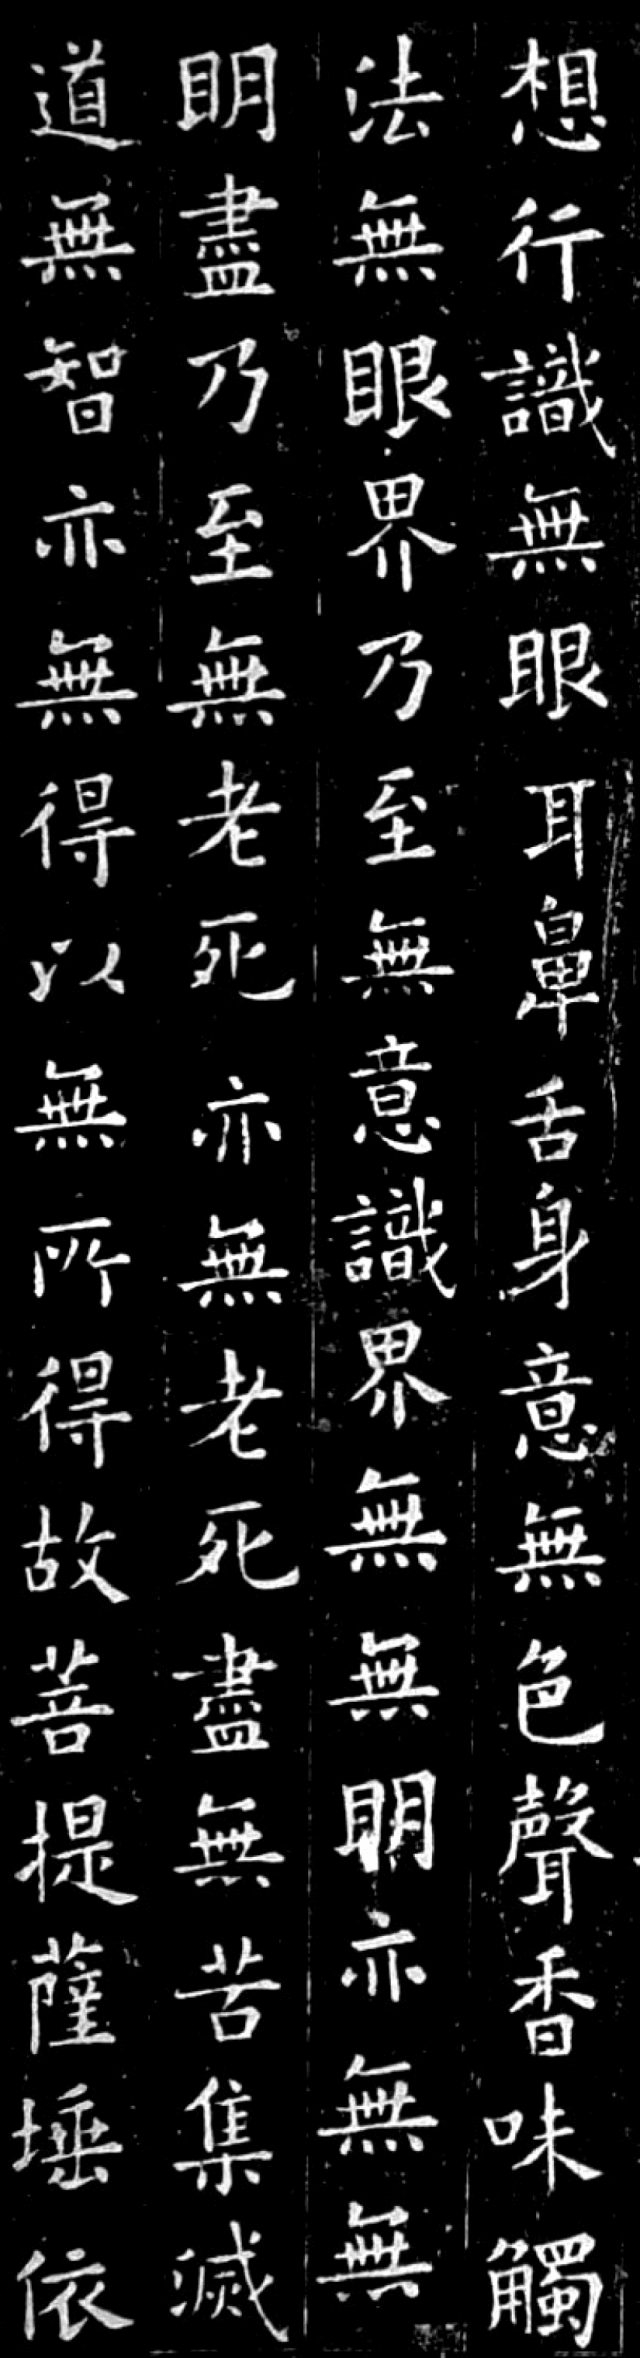 想行識無眼耳鼻舌身意無色聲香味觸
法無眼界乃至無意識界無無明亦無無
明盡乃至無老死亦無老死盡無苦集滅
道無智亦無得以無所得故菩提薩埵依